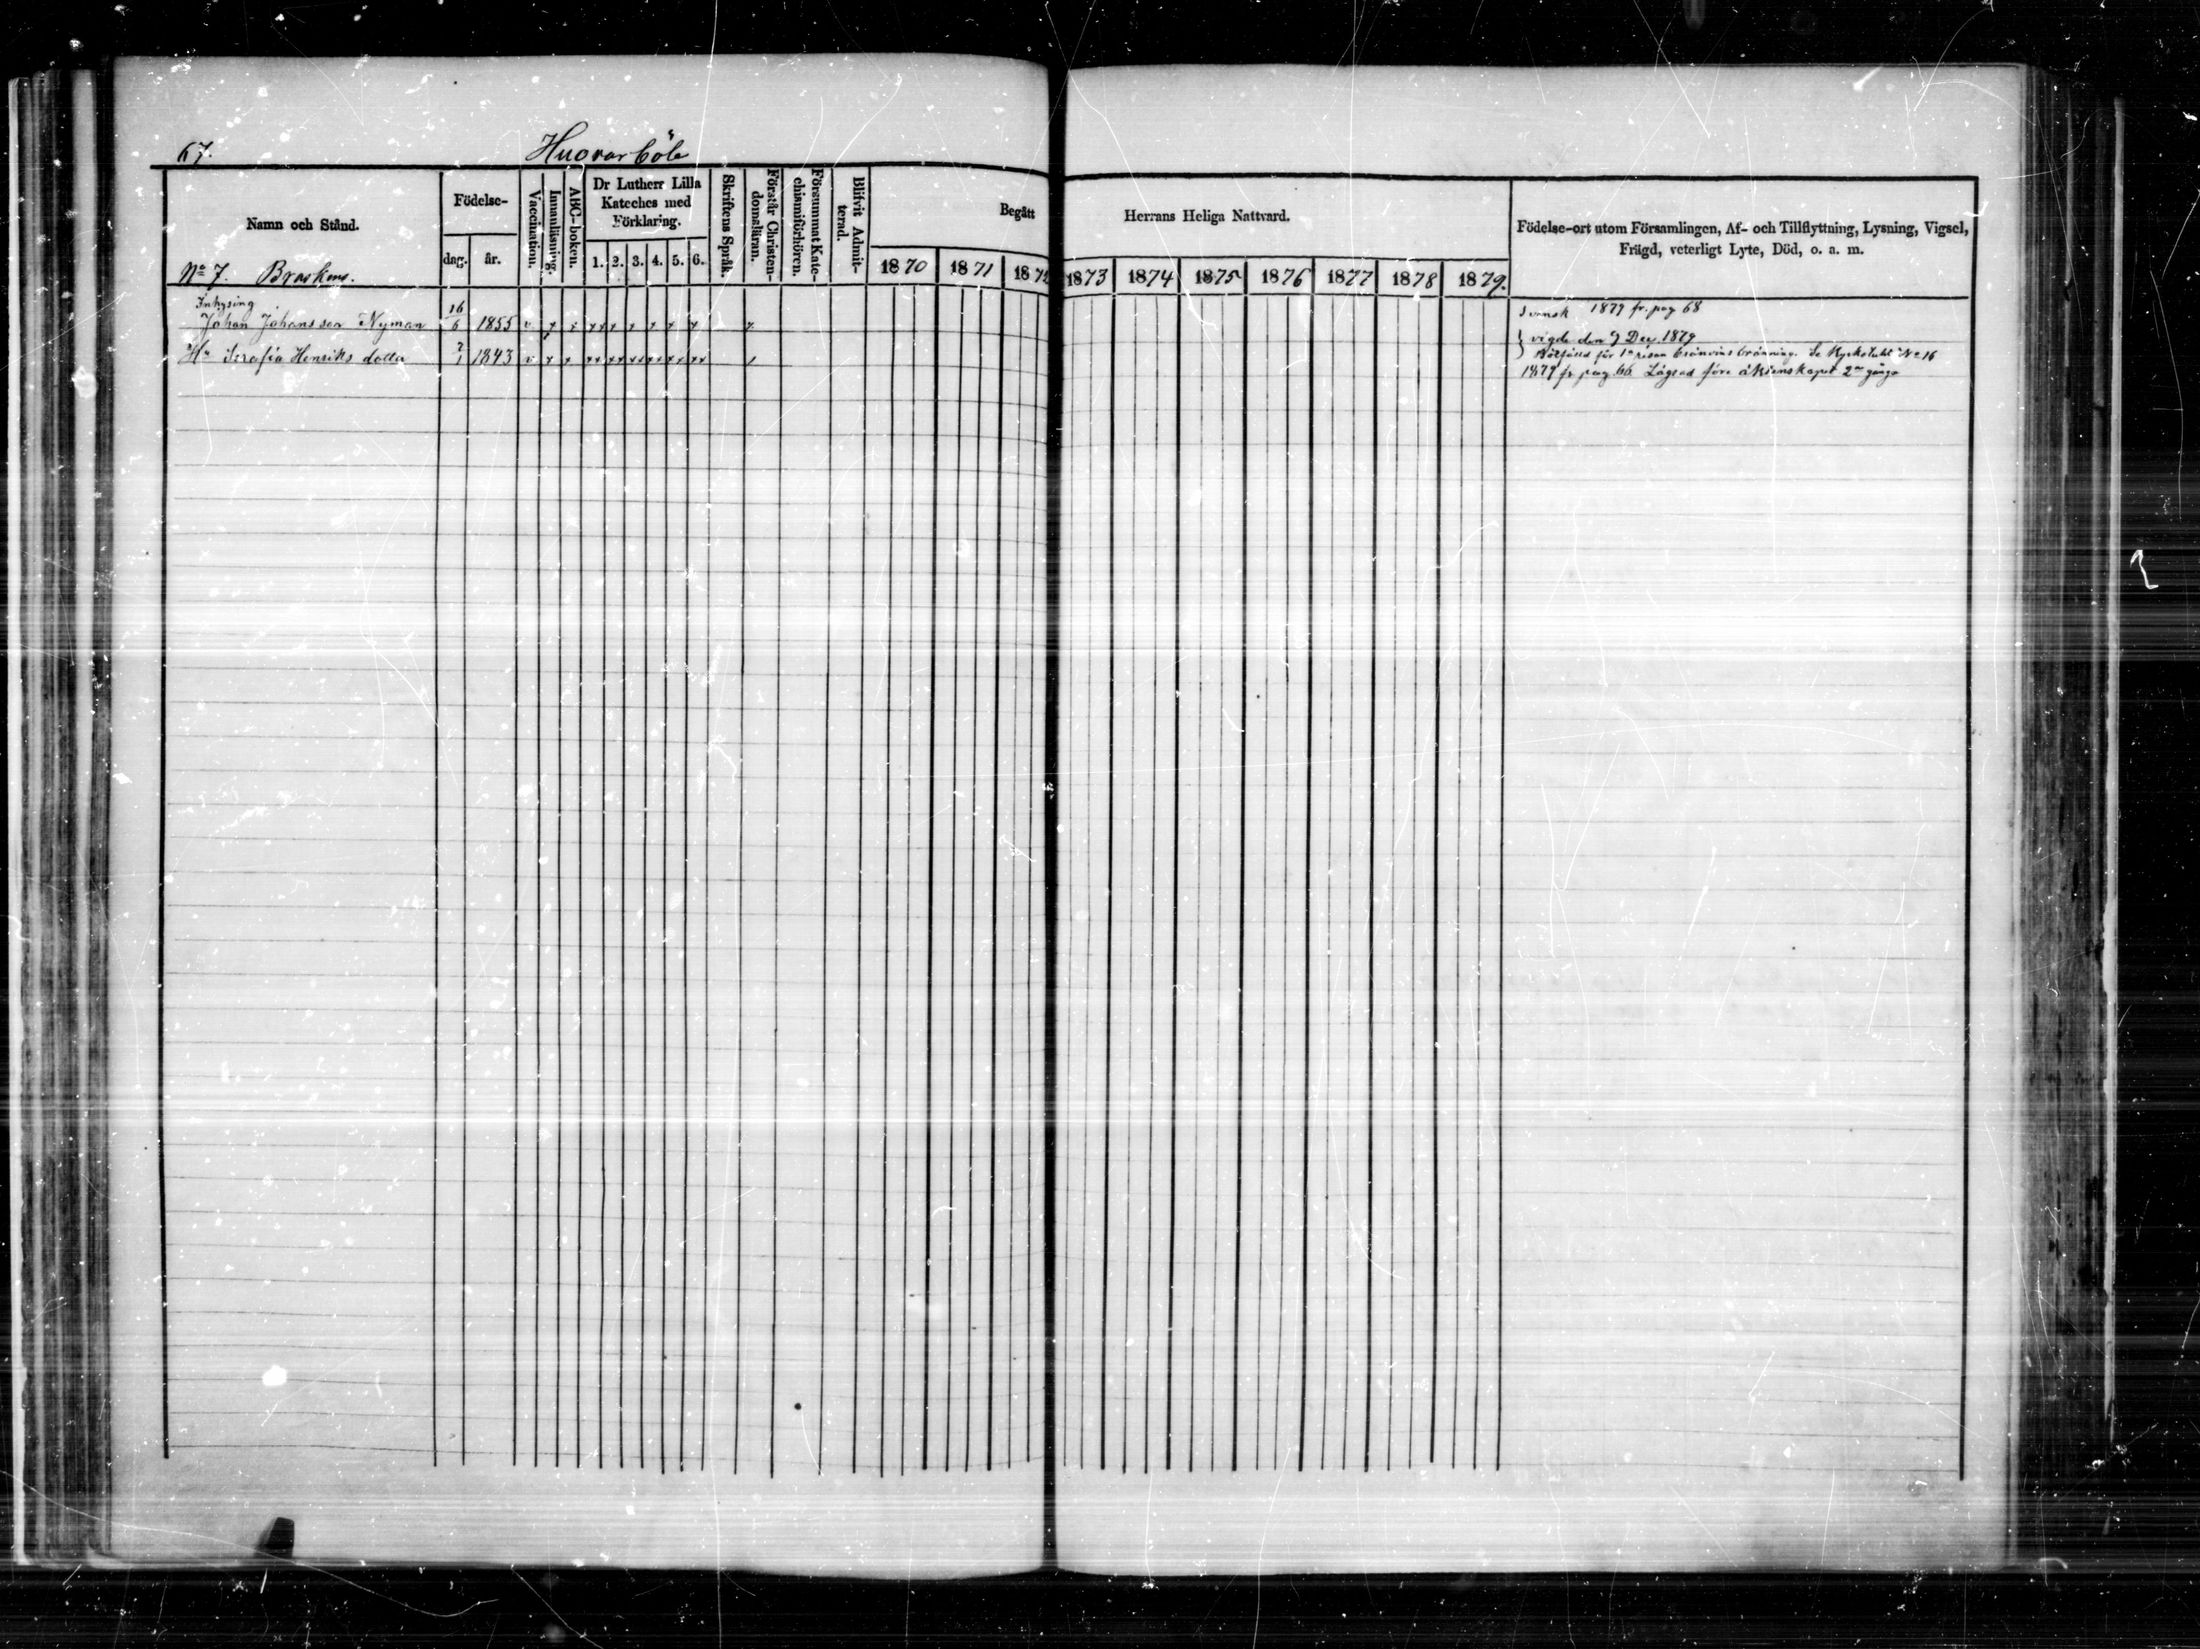 67.
Huovarböle
Namn och Stånd.
Födelse-
dag.
år.
Vaccination.
Innanläsning.
ABC-boken.
Dr Lutherr Lilla
Kateches med
Förklaring.
1. 2. 3. 4. 5. 6.
Skriftens Språk.
Förstår Christen-
domsläran.
Försummat Kate-
chismiförhören.
Blifvit Admit-
terad.
Begått
Herrans Heliga Nattvard.
1870 1871 1872 1873 1874 1875 1876 1877 1878 1879.
Födelse-ort utom Församlingen, Af- och Tillflyttning, Lysning, Vigsel,
Frägd, veterligt Lyte, Död, o. a. m.
No 7. Braskens.
Inhysing
Johan Johansson Nyman 16/6 1855 v x x xx x x x x x x
svensk 1879 fr. pag 68
H:u Serafia Henriks dotter 7/1 1843 v x x xx xx xx xx xx xx
} vigde den 9 Dec. 1879
Bötfälld för 1a resan bränvins bränning. Se Kyrkotukt No 16
1879 fr pag. 66 Lägrad före äktenskapet 2ne gånge